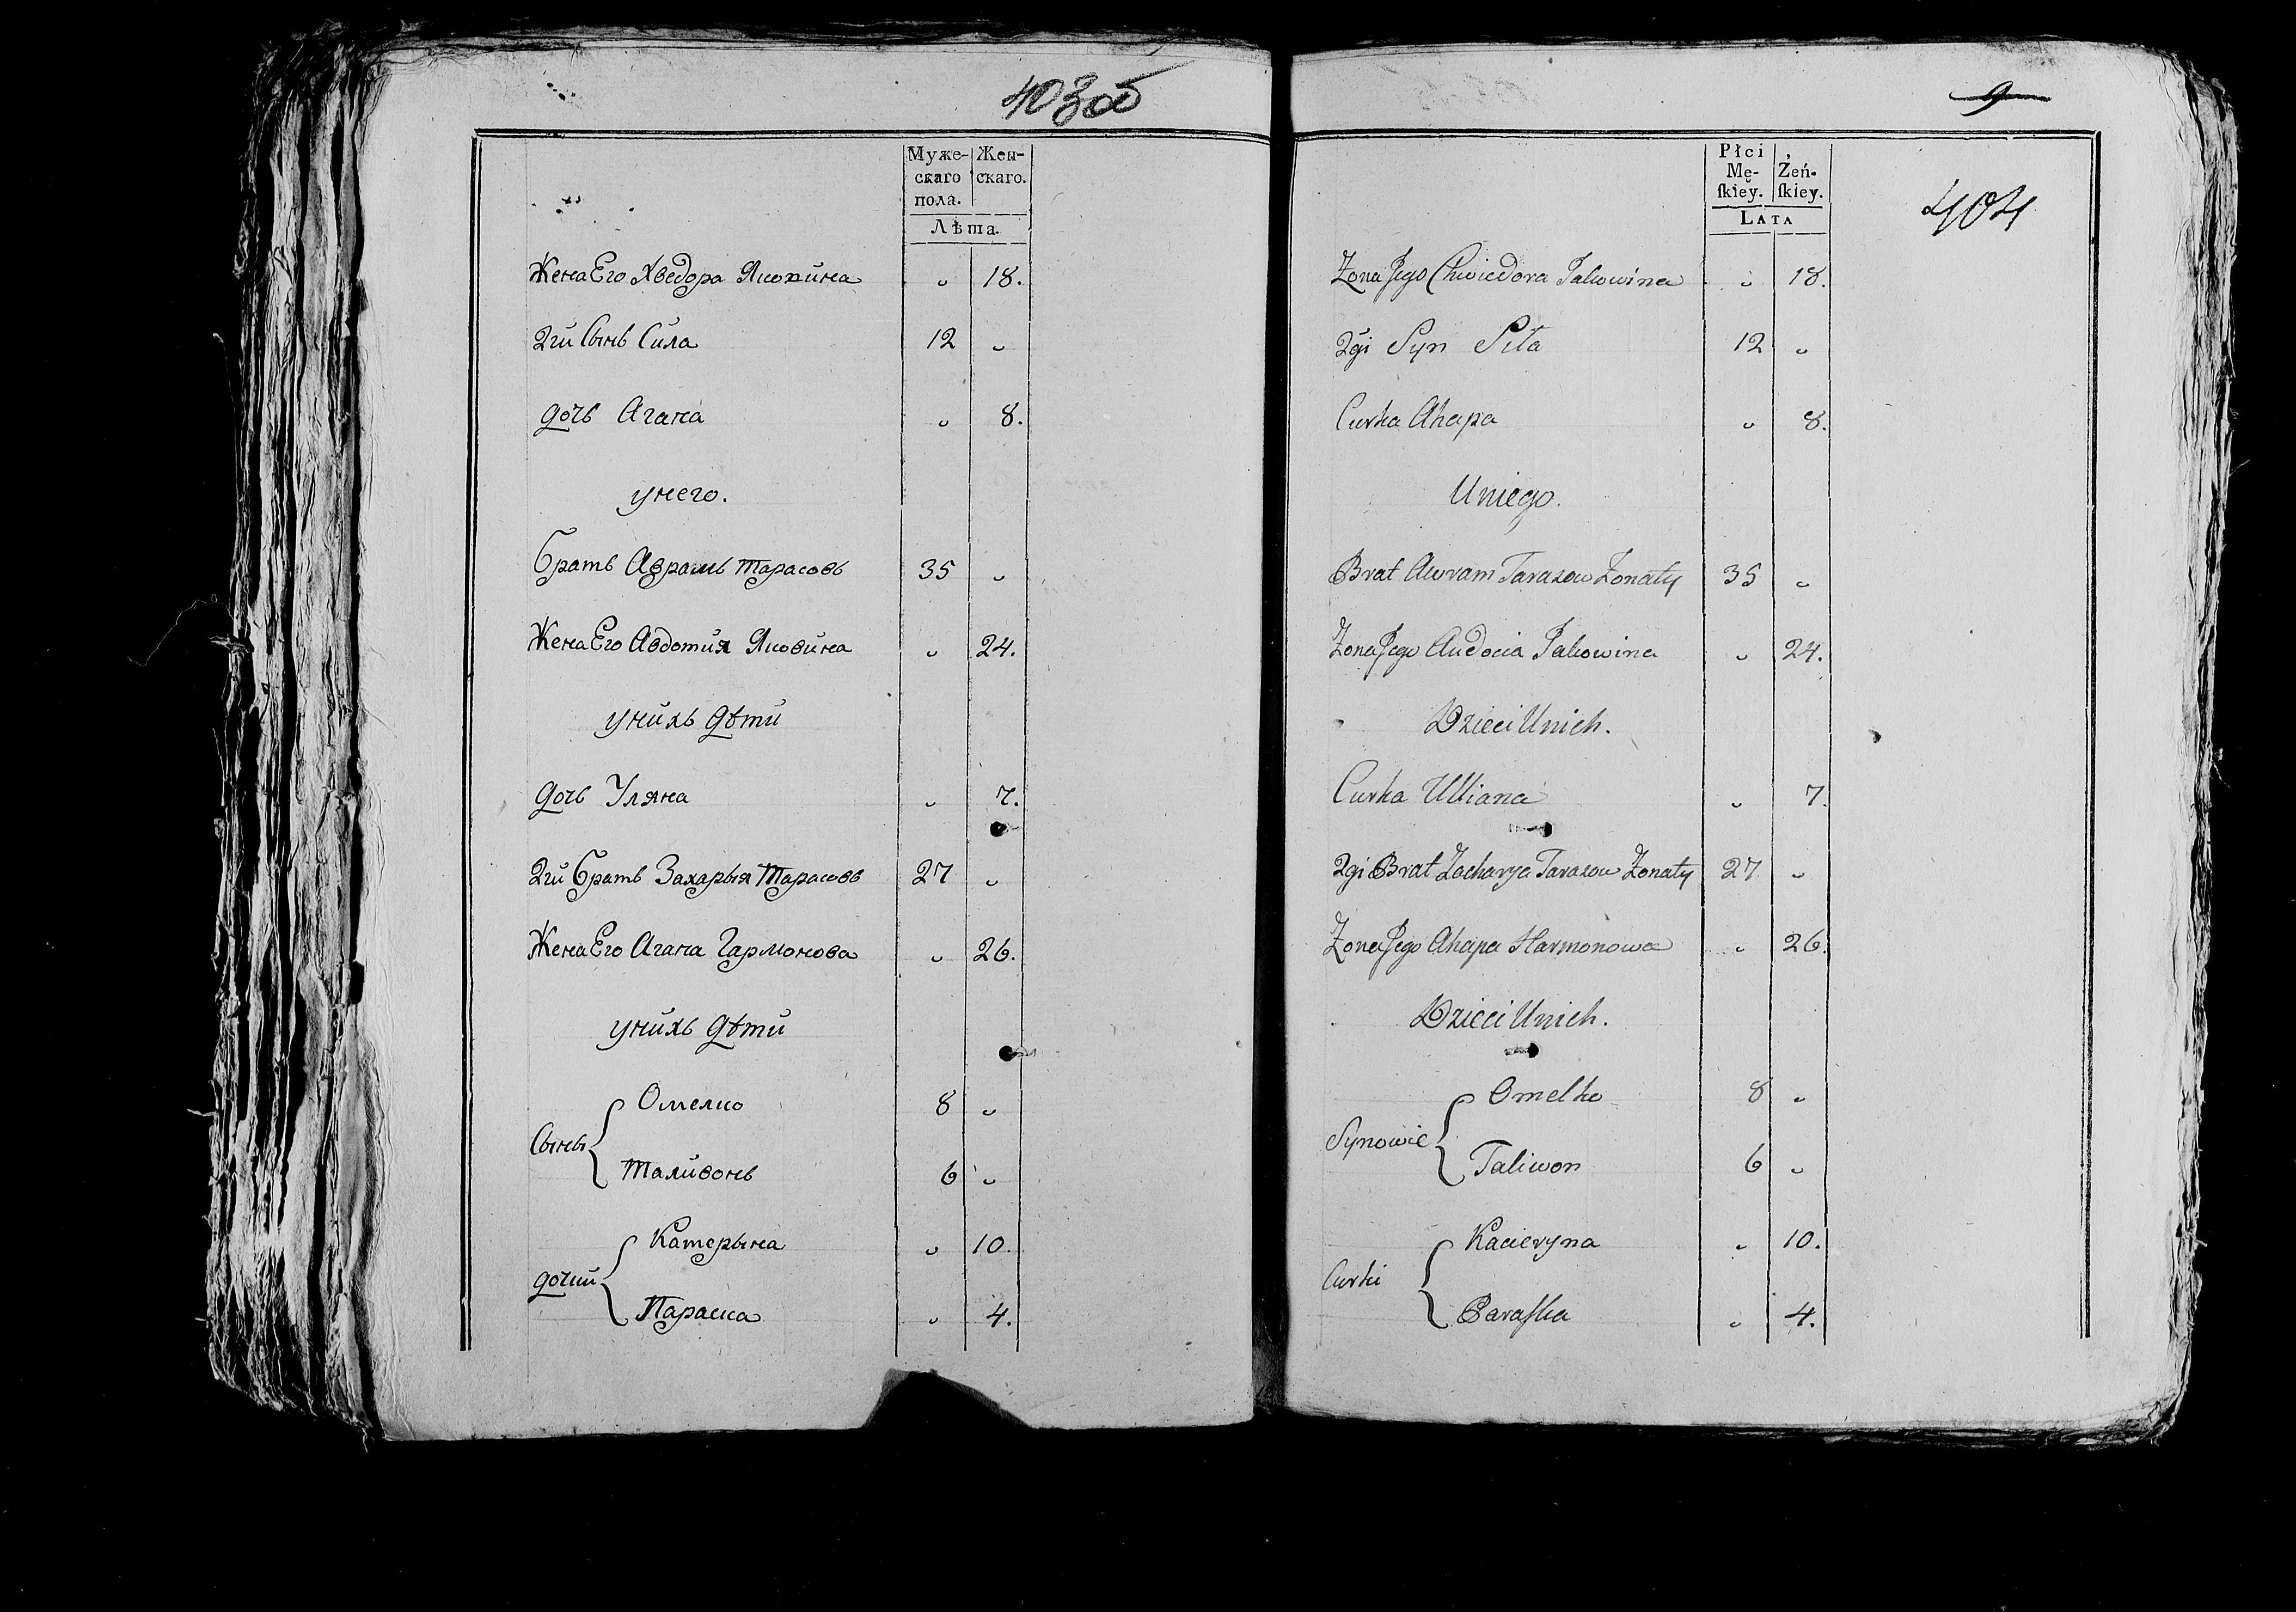 403об
Муже- Жен-
скаго скаго.
пола.
Лѣта.
Жена Его Хведора Яковина " 18.
2й Сынъ Сила 12 "
дочь Агапа " 8.
у него.
Братъ Аврамъ Тарасовъ 35 "
Жена Его Авдотия Яковина " 24.
у нихъ дѣти
дочь Уляна " 7.
2й Братъ Захарыя Тарасовъ 27 "
Жена Его Агапа Гармонова " 26.
у нихъ дѣти
Омелко 8 "
Сыны
Таливонъ 6 "
Катерына " 10.
дочки
Параска " 4.
9
404
Płci
Mę- Żeń-
ſkiey. ſkiey.
LATA
Zona Jego Chwiedora Jakowina " 18.
2gi Syn Siła 12 "
Curka Ahapa " 8.
U niego.
Brat Awram Tarasow Zonaty 35 "
Zona Jego Audocia Jakowina " 24.
Dzieci U nich.
Curka Ulliana " 7.
2gi Brat Zacharya Tarasow Zonaty 27 "
Zona Jego Ahapa Harmonowa " 26.
Dzieci U nich.
Omelko 8 "
Synowie
Taliwon 6 "
Kacieryna " 10.
Curki
Paraſka " 4.